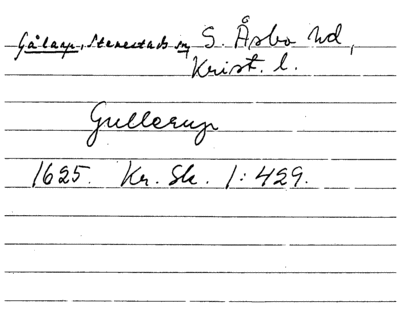 Gålarp, Stenestads sn, S. Åsbo hd,
Krist. l.
Gullerup
1625. Kr. Sk. 1:429.